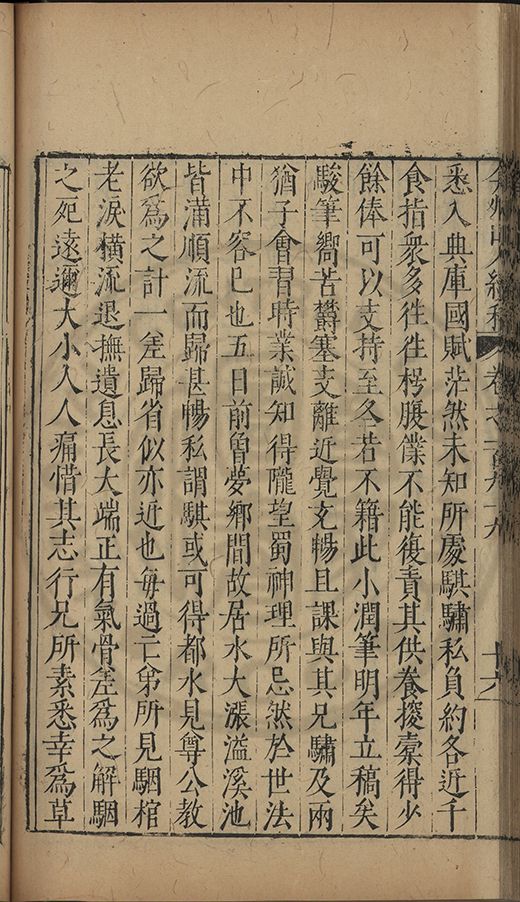 弇州山人續稿 卷之一百九十九 十六
悉入典庫國賦茫然未知所處騏驌私負約各近千
食指衆多徃徃枵腹僕不能復責其供養搜橐得少
餘俸可以支持至冬若不籍此小潤筆明年立稿矣
駿筆嚮苦欝塞支離近覺充暢且課與其兄驌及兩
猶子會習時業誠知得隴望蜀神理所忌然於世法
中不容已也五日前曾夢鄉間故居水大漲溢溪池
皆滿順流而歸甚暢私謂騏或可得都水見尊公教
欲爲之計一差歸省似亦近也毎過亡弟所見駰棺
老淚橫流退撫遺息長大端正有氣骨差爲之解駰
之夗遠邇大小人人痛惜其志行兄所素悉幸爲草